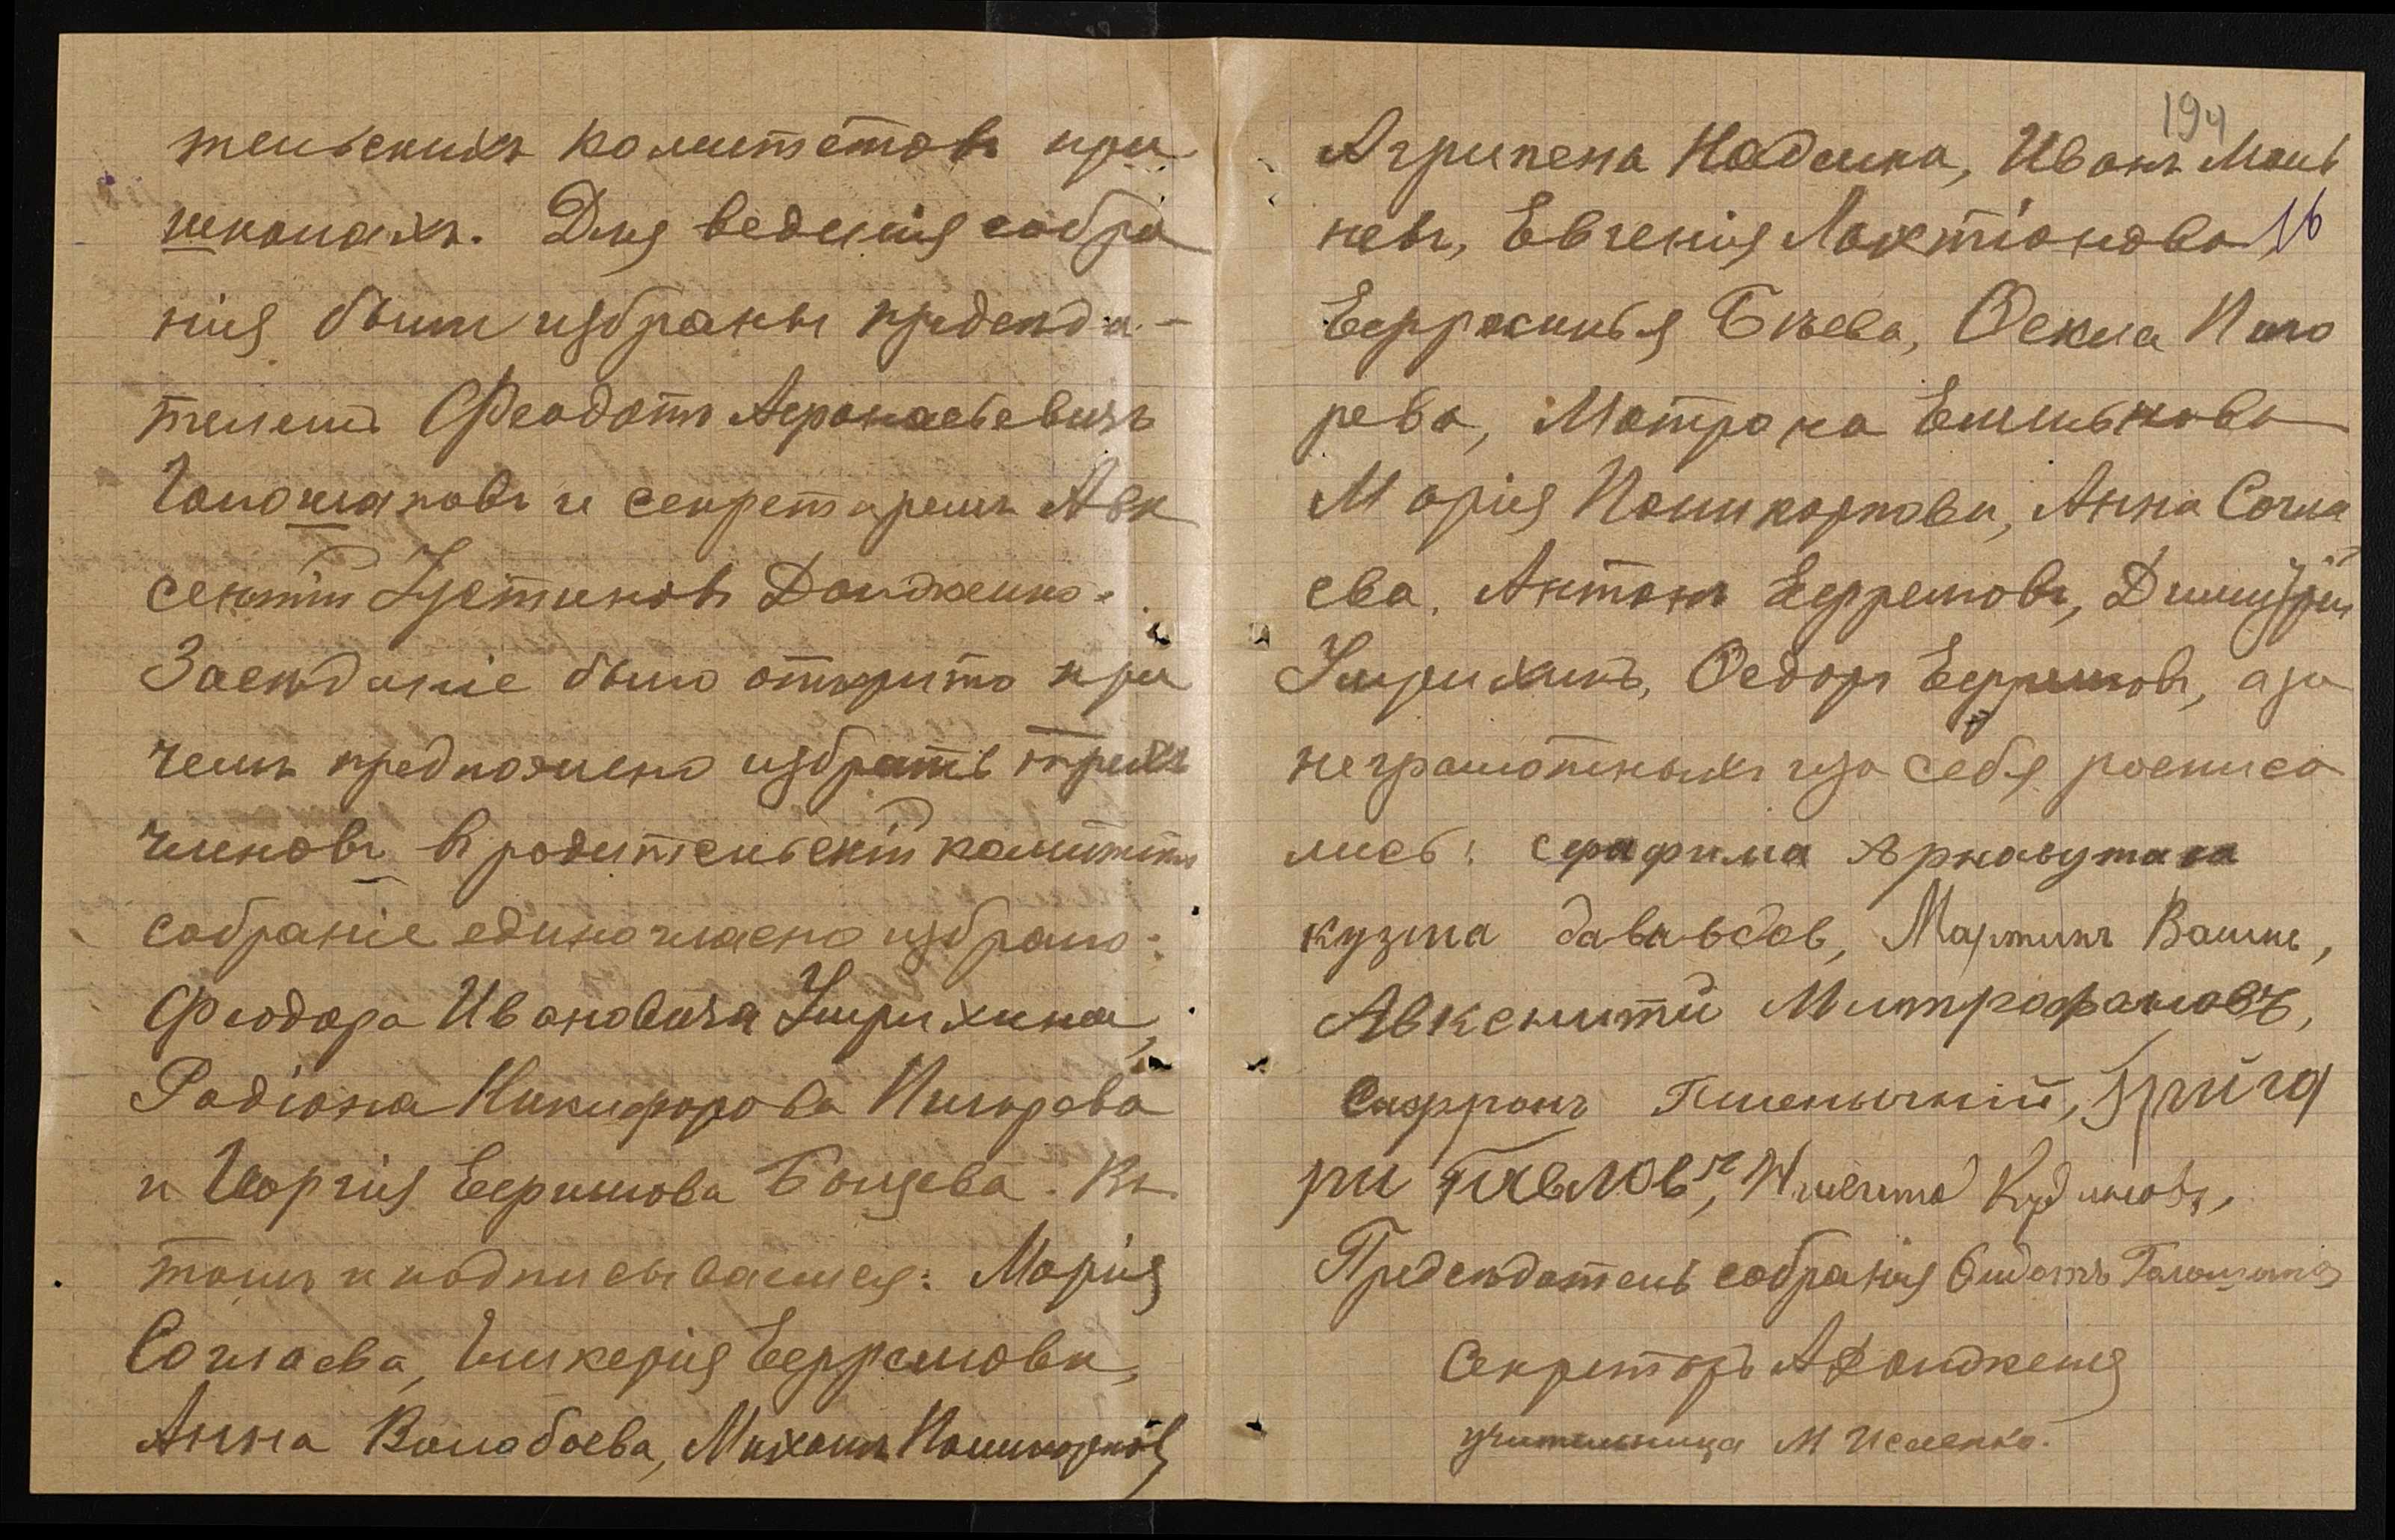 тельскихъ комитетовъ при
школахъ. Для веденія собра
нія были избраны председа-
телемъ Феодотъ Афонасьевичъ
Галошаповъ и секретаремъ Авк
сентій Устиновъ Долдженко.
Заседаніе было открыто при
чемъ предложено избрать трехъ
членовъ въ родительскій комитетъ
собраніе единогласно избрало:
Феодора Ивановича Умрихина,
Радіона Никифорова Пигорева
и Георгія Ефримова Боцева. Къ
тому и подписывались: Марія
Согмаева, Гликерія Ефремова,
Анна Волобоева, Михаилъ Поликарповъ
194
Агрипена Надеина, Иванъ Маль
невъ, Евгенія Лактіонова 16
Ефросинья Бъева, Фекла Пиго
рева, Матрона Емельянова
Марія Поликарпова, Анна Согма
ева, Антонъ Ефремовъ, Димитрій
Умрихинъ, Федоръ Ефремовъ, а за
неграмотныхъ и за себя росписа
лись: серафима Арнаутава
кузма давыдов, Мартинъ
Авксентий Митрофановъ,
Сафронъ Пшеничній, Григо
ри Павловъ, Никита Кудиновъ,
Председатель собранія Федотъ
Секретарь А Долдженко
учительница М Исаенко.